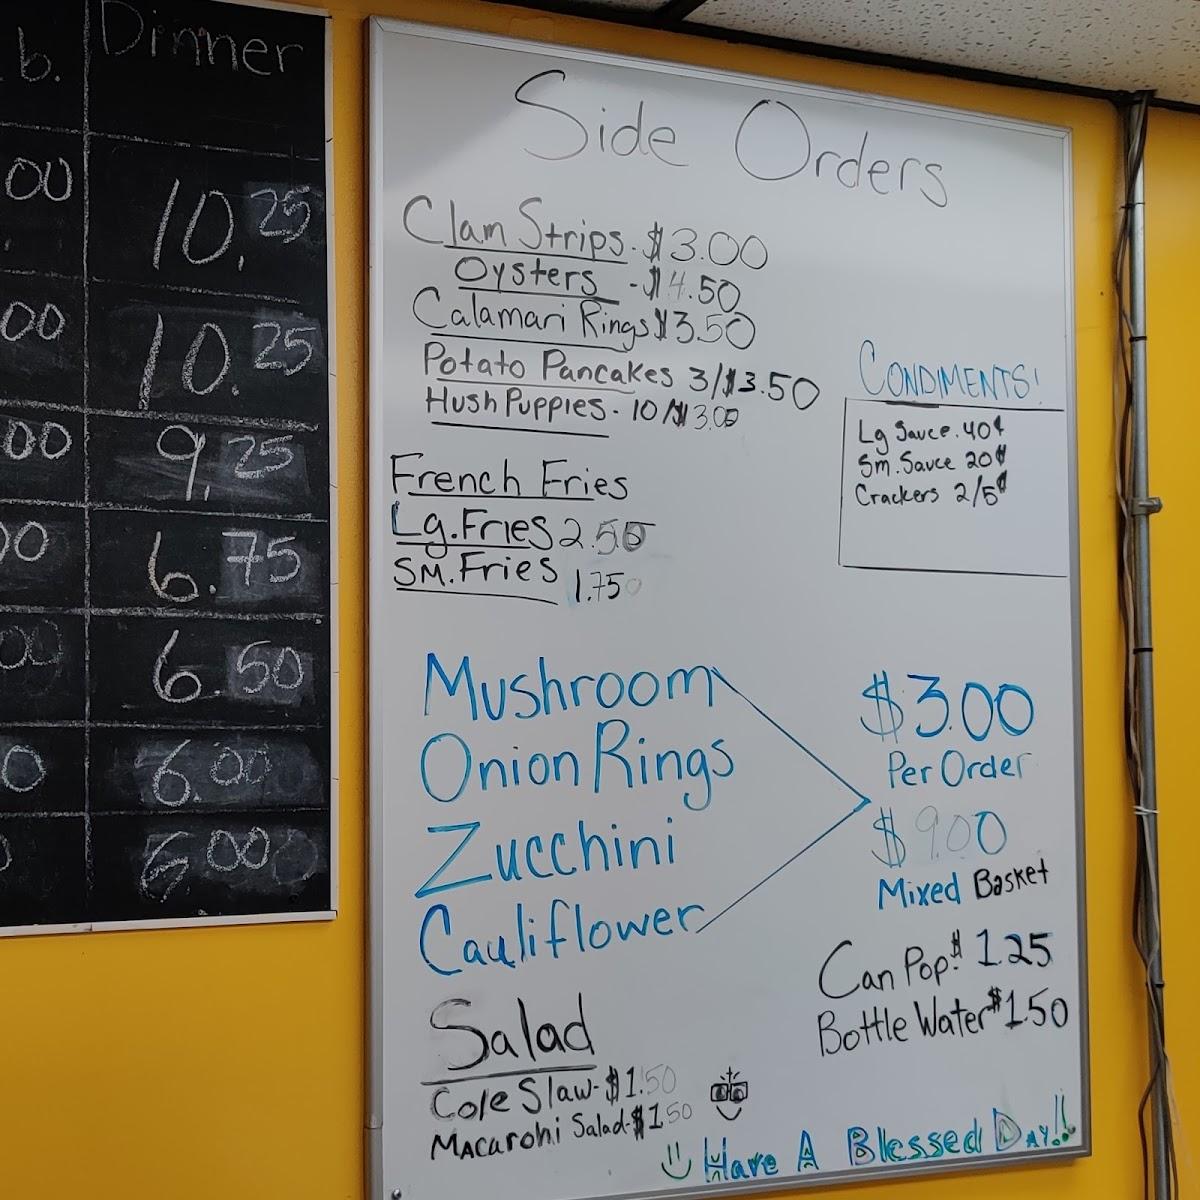 b. Dinner
00 10.25
00 10.25
00 9.25
00 6.75
00 6.50
0 6.00
Side Orders
Clam Strips - $3.00
Oysters - $4.50
Calamari Rings $3.50
Potato Pancakes 3/$3.50
Hush Puppies - 10/$3.00
CONDIMENTS!
Lg Sauce . 40¢
Sm. Sauce 20¢
Crackers 2/5¢
French Fries
Lg. Fries 2.50
SM. Fries 1.75
Mushroom
Onion Rings
Zucchini
Cauliflower
$3.00
Per Order
$9.00
Mixed Basket
Can Pop $1.25
Bottle Water $1.50
Salad
Cole Slaw - $1.50
Macaroni Salad - $1.50
Have A Blessed Day!!